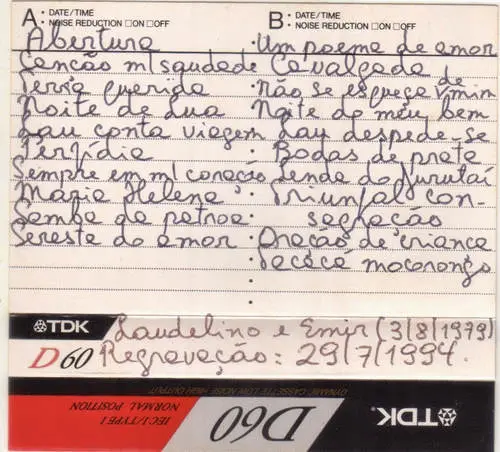 A: · DATE/TIME
· NOISE REDUCTION □ON □OFF
Abertura
Canção m/saudade
Terra querida
Noite de lua
Lau conta viagem
Perfídia
Sempre em m/ coração
Maria Helena
Samba da patroa
Seresta do amor
B: · DATE/TIME
· NOISE REDUCTION □ON □OFF
Um poema de amor
Cavalgada
Não se esqueça de mim
Noite do meu bem
Lau despede-se
Bodas de prata
Lenda do Jurutaí
Triunfal con-
sagração
Oração de criança
Tacacá mocorongo
TDK
D60
Laudelino e Emir (3/8/1979)
Regravação: 29/7/1994.
DYNAMIC CASSETTE LOW NOISE HIGH OUTPUT
IEC I/TYPE I
NORMAL POSITION
D60
TDK